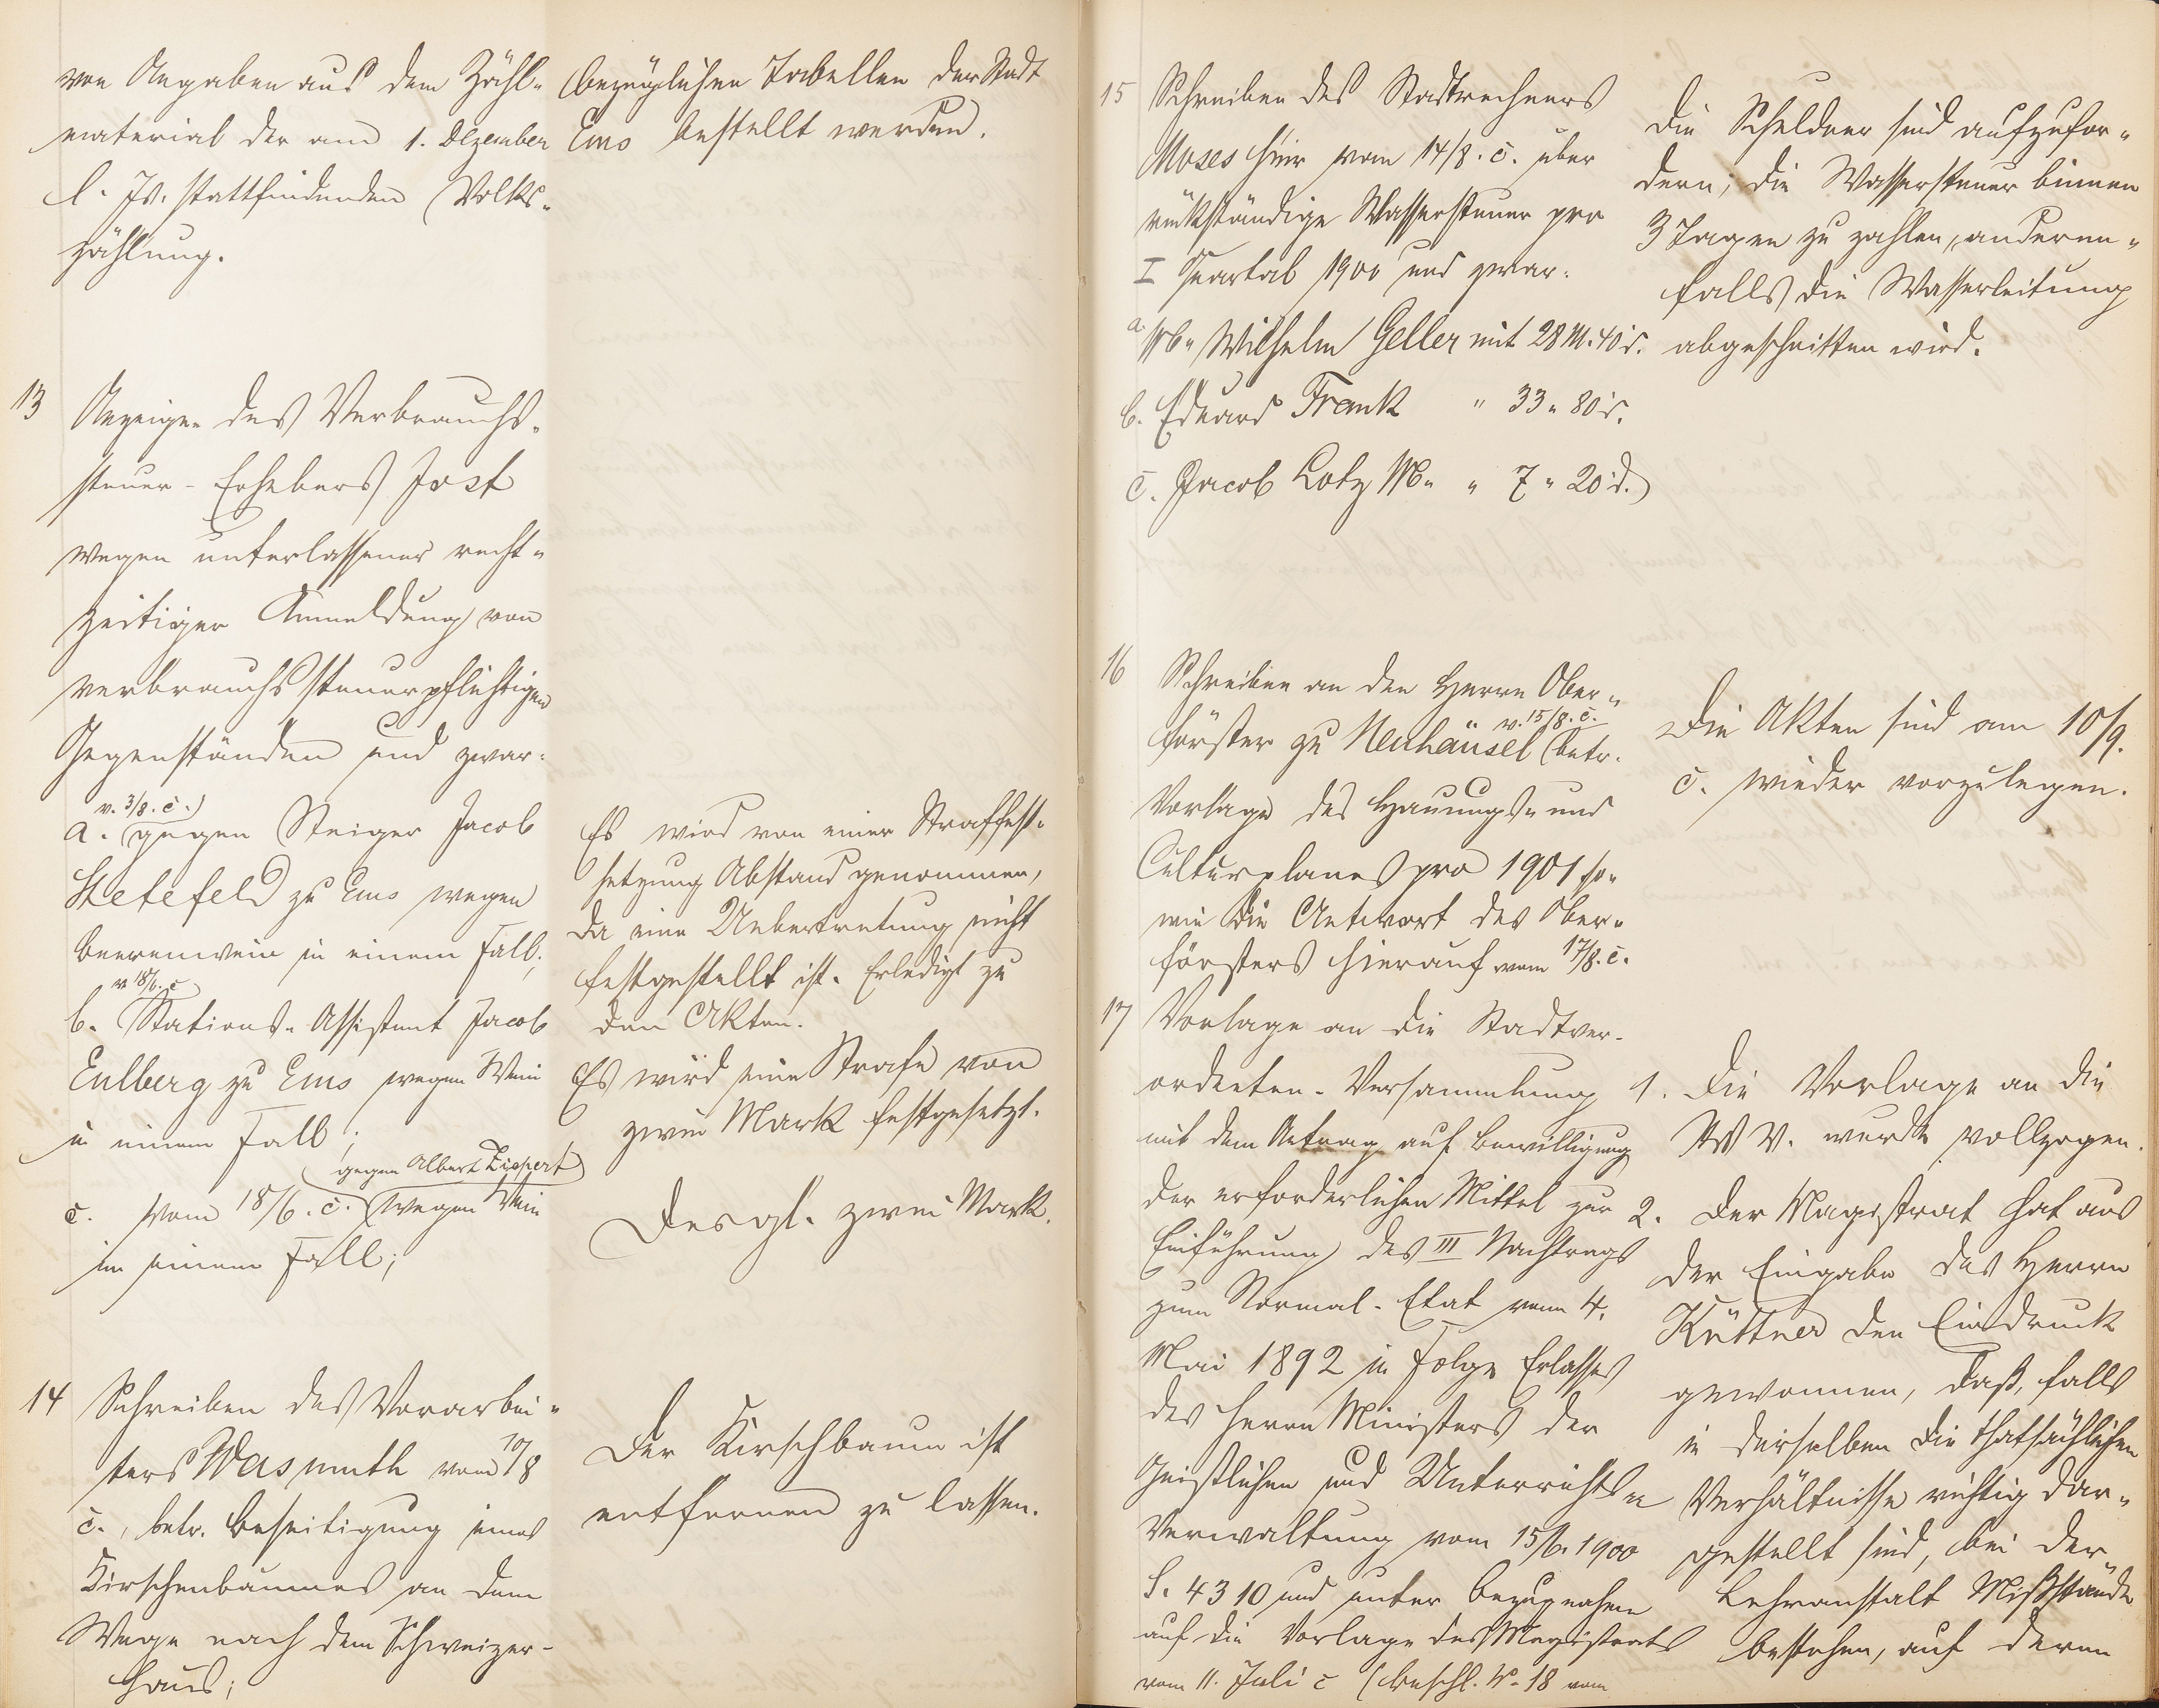 von Angaben aus dem Zähl-
material der am 1. Dezember
l. Js. stattfindenden Volks-
zählung.
bezüglichen Tabellen der Stadt
Ems bestellt werden.
13
Anzeigen des Verbrauchs-
steuer-Erhebers Jost
wegen unterlassener recht-
zeitiger Anmeldung von
verbrauchssteuerpflichtigen
Gegenständen und zwar:
v. 3/8. c.
a. gegen Steiger Jacob
Stetefeld zu Ems wegen
Beerenwein in einem Fall;
v. 18/6. c
b. Stations-Assistent Jacob
Eulberg zu Ems wegen Wein
in einem Fall;
gegen Albert Lippert
c. vom 18/6. c. wegen Wein
in einem Fall;
Es wird von einer Straffest-
setzung Abstand genommen,
da eine Uebertretung nicht
festgestellt ist. Erledigt zu
den Akten.
Es wird eine Strafe von
zwei Mark festgesetzt.
Desgl. zwei Mark.
14
Schreiben des Vorarbei-
ters Wasmuth vom 10/8
c., betr. Beseitigung eines
Kirschenbaumes an dem
Wege nach dem Schweizer-
haus;
Der Kirschbaum ist
entfernen zu lassen.
15
Schreiben des Stadtrechners
Moses hier vom 14/8. c. über
rückständige Wassersteuer pro
I Quartal 1900 und zwar:
a. Wilhelm Geller mit 28 M. 40 d.
b. Eduard Frank " 33 " 80 d.
c. Jacob Lotz " 7 " 20 d.
Die Schuldner sind aufzufor-
dern, die Wassersteuer binnen
3 Tagen zu zahlen, anderen-
falls die Wasserleitung
abgeschnitten wird.
16
Schreiben an den Herrn Ober-
v. 15/8. c.
förster zu Neuhäusel betr.
Vorlage des Hauungs- und
Culturplanes pro 1901 so-
wie die Antwort des Ober-
försters hierauf vom 17/8. c.
Die Akten sind am 10/9.
c. wieder vorzulegen.
17
Vorlage an die Stadtver-
ordneten-Versammlung
mit dem Antrag auf Bewilligung
der erforderlichen Mittel zur
Einführung des III Nachtrags
zum Normal-Etat vom 4.
Mai 1892 in Folge Erlasses
des Herrn Ministers der
Geistlichen und Unterrichts-
Verwaltung vom 15/6. 1900
4310 und unter Bezugnahme
auf die Vorlage des Magistrats
vom 11. Juli c (Beschl. No. 18 vom
1. Die Vorlage an die
V. wurde vollzogen.
2. Der Magistrat hat aus
der Eingabe des Herrn
Küttner den Eindruck
gewonnen, daß, falls
in derselben die thatsächlichen
Verhältnisse richtig dar-
gestellt sind, bei der
Lehranstalt Mißstände
bestehen, auf deren